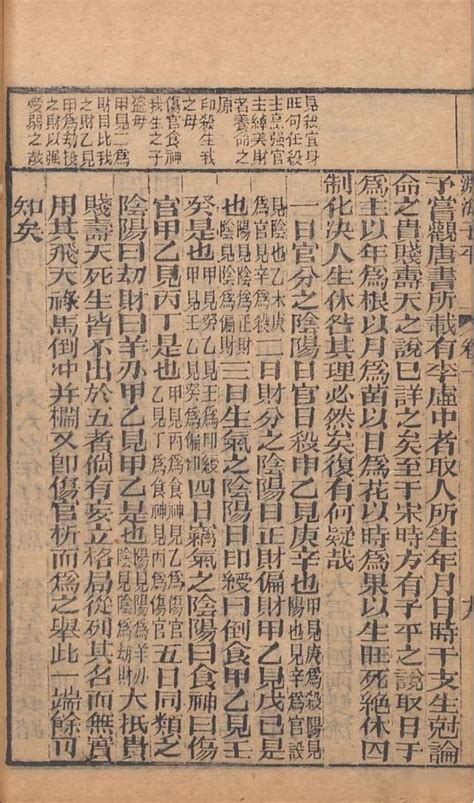 淵海子平
見殺宜身
旺何任殺
主惡强官
主綽美財
者養命之
原
印殺生我
之母
傷官食神
我生之子
盜母
甲見二爲
財目比我
之財乙見
甲爲劫投
之財以强
愛弱之故
予嘗觀唐書所載有李虛中者取人所生年月日時干支生尅論
命之貴賤壽夭之說已詳之矣至于宋時方有子平之說取日干
爲主以年爲根以月爲苗以日爲花以時爲果以生旺死絕休囚
制化決人生休咎其理必然矣復有何疑哉
一曰官分之陰陽曰官曰殺甲乙見庚辛也甲見庚爲殺陽見陽也甲見辛爲官
見陰也乙見庚爲官見辛爲殺二曰財分之陰陽曰正財偏財甲乙見戊己是
也陽見陰爲正財陽見陽爲偏財三曰生氣之陰陽曰印綬曰倒食甲乙見壬
癸是也甲見癸乙見壬爲印綬甲見壬乙見癸爲倒食四曰竊氣之陰陽曰食神曰傷
官甲乙見丙丁是也甲見丙乙見丁爲食神甲見丁乙見丙爲傷官五曰同類之
陰陽曰劫財曰羊刃甲乙見甲乙是也陽見陰爲羊刃陰見陽爲劫財大抵貴
賤壽夭死生皆不出於五者倘有妄立格局從列其名而無實
用其飛天祿馬倒冲井欄叉卽傷官析而爲之舉此一端餘可
知矣